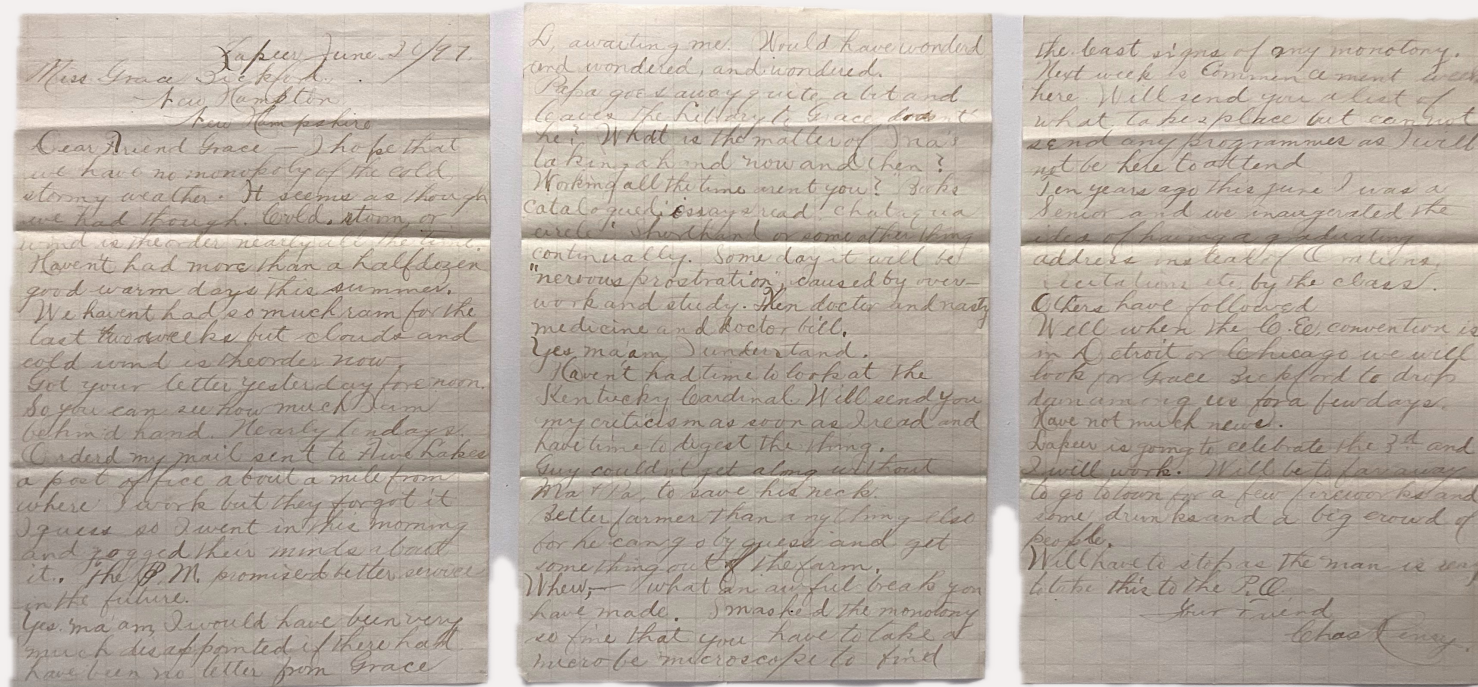 Lapeer June 20/97.
Miss Grace Bickford.
New Hampton
New Hampshire
Dear Friend Grace — I hope that
we have no monopoly of the cold,
stormy weather. It seems as though
we had though. Cold, storm, or
wind is the order nearly all the time.
Havent had more than a half dozen
good warm days this summer.
We havent had so much rain for the
last two weeks but clouds and
cold wind is the order now
Got your letter yesterday forenoon.
So you can see how much I am
behind hand. Nearly ten days.
Orderd my mail sent to Five Lakes
a post office about a mile from
where I work but they forgot it
I guess so I went in this morning
and gogged their minds about
it. The P.M. promised better service
in the future.
Yes, ma am, I would have been very
much disappointed if there had
have been no letter from Grace
D, awaiting me. Would have wonderd
and wondered, and wondured.
Papa goes away quite a bit and
leaves the library to Grace doesn't
he? What is the matter of Ina's
taking a hand now and then?
Working all the time arent you? Books
catalogued, essays read, chataqua
circle, shorthand or some other thing
continually. Some day it will be
"nervous prostration, caused by over-
work and study. Then doctor and nasty
medicine and doctor bill.
Yes, ma am, I understand.
Haven't had time to look at the
Kentucky Cardinal. Will send you
my criticism as soon as I read and
have time to digest the thing.
Guy couldn't get along without
Ma & Pa, to save his neck.
Better farmer than anything else
for he can go by guess and get
something out of the farm.
Whew,— what an awful break you
have made. Smashed the monotony
so fine that you have to take a
microbe microscope to find
the least signs of any monotony.
Next week is Commencement week
here. Will send you a list of
what takes place but can not
send any programmes as I will
not be here to attend
Ten years ago this June I was a
Senior and we inaugerated the
idea of having a graduating
address instead of Orations,
recitations etc. by the class.
Others have followed
Well when the C.E. convention is
in Detroit or Chicago we will
look for Grace Bickford to drop
down among us for a few days.
Have not much news.
Lapeer is going to celebrate the 3rd and
I will work. Will be to far away
to go to town for a few fireworks and
some drunks and a big crowd of
people.
Will have to stop as the man is ready
to take this to the P.O.
Your Friend
Chas